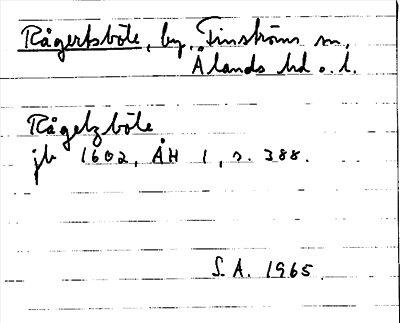 Rågertsböle, by, Finströms sn,
Ålands hd o. l.
Rågelzböle
jb 1602, ÅH 1, s. 388.
S. A. 1965.